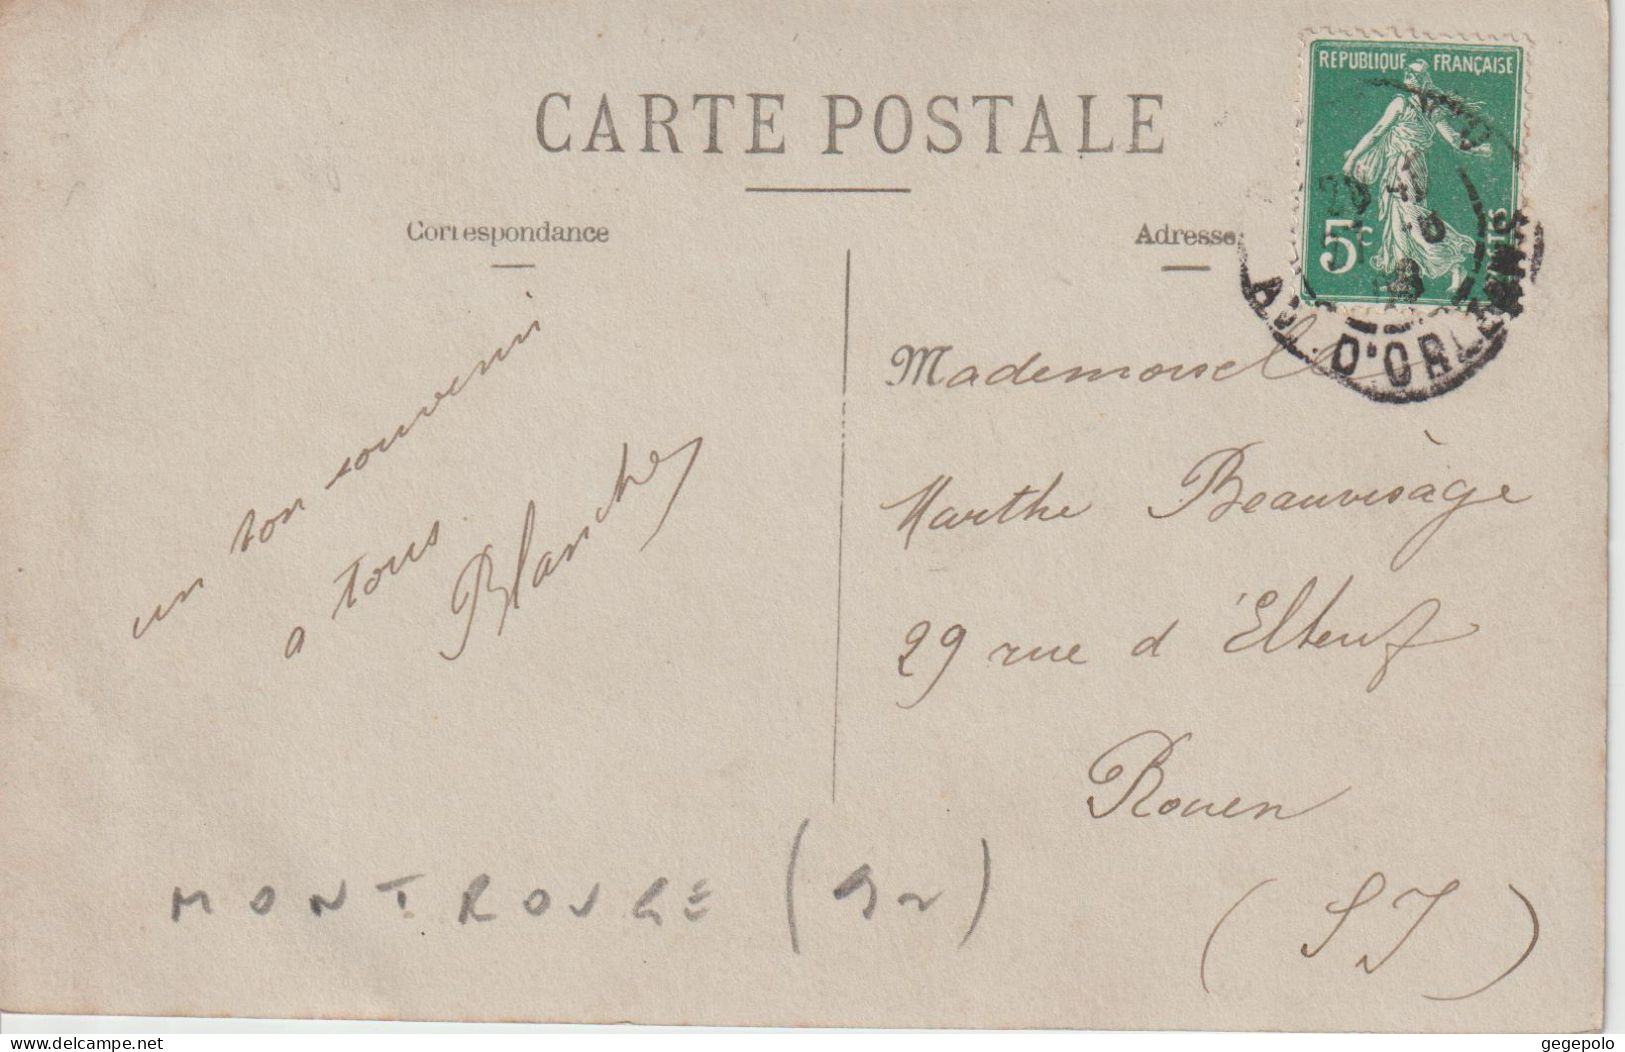 CARTE POSTALE
Correspondance
Adresse
REPUBLIQUE FRANÇAISE
5c
D'ORLEANS
un bon souvenir
a tous
Blanche
Mademoiselle
Marthe Beauvisage
29 rue d'Elbeuf
Rouen
(S I)
MONTROUGE (92)
delcampe.net
gegepolo